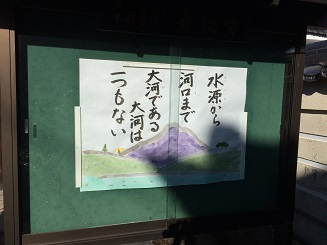 水源から
河口まで
大河である
大河は
一つもない